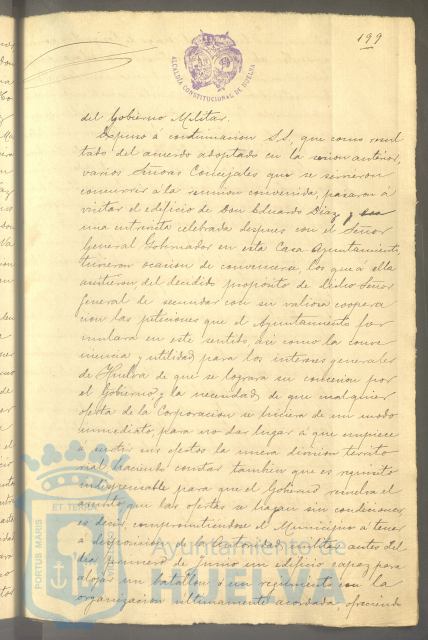 199
ALCALDÍA CONSTITUCIONAL DE HUELVA
del Gobierno Militar.
Expuso á continuacion S.S. que como resul
tado del acuerdo adoptado en la sesion anterior,
varios Señores Concejales que se sirvieron
concurrir á la reunion convenida, pasaron á
visitar el edificio de Don Eduardo Diaz y en
una entrevista celebrada despues con el Señor
General Gobernador en esta Casa Ayuntamiento,
tuvieron ocasion de convencerse, los que á ella
asistieron, del decidido propósito de dicho Señor
General de secundar con su valiosa coopera
cion las peticiones que el Ayuntamiento for
mulara en este sentido, asi como la conve
niencia y utilidad para los intereses generales
de Huelva de que se lograra su concesion por
el Gobierno y la necesidad de que cualquier
oferta de la Corporacion se hiciera de un modo
inmediato, para no dar lugar á que empiece
á surtir sus efectos la nueva division territo
rial, haciendo constar tambien que es requisito
indispensable para que el Gobierno resuelva el
asunto que las ofertas se hagan sin condiciones
es decir, comprometiendose el Municipio á tener
á disposicion de la autoridad militar antes del
dia primero de Junio un edificio capaz para
alojar un batallon ó un regimiento con la
organizacion ultimamente acordada, ofreciendo
PORTUS MARIS ET TERRAE
Ayuntamiento de
HUELVA